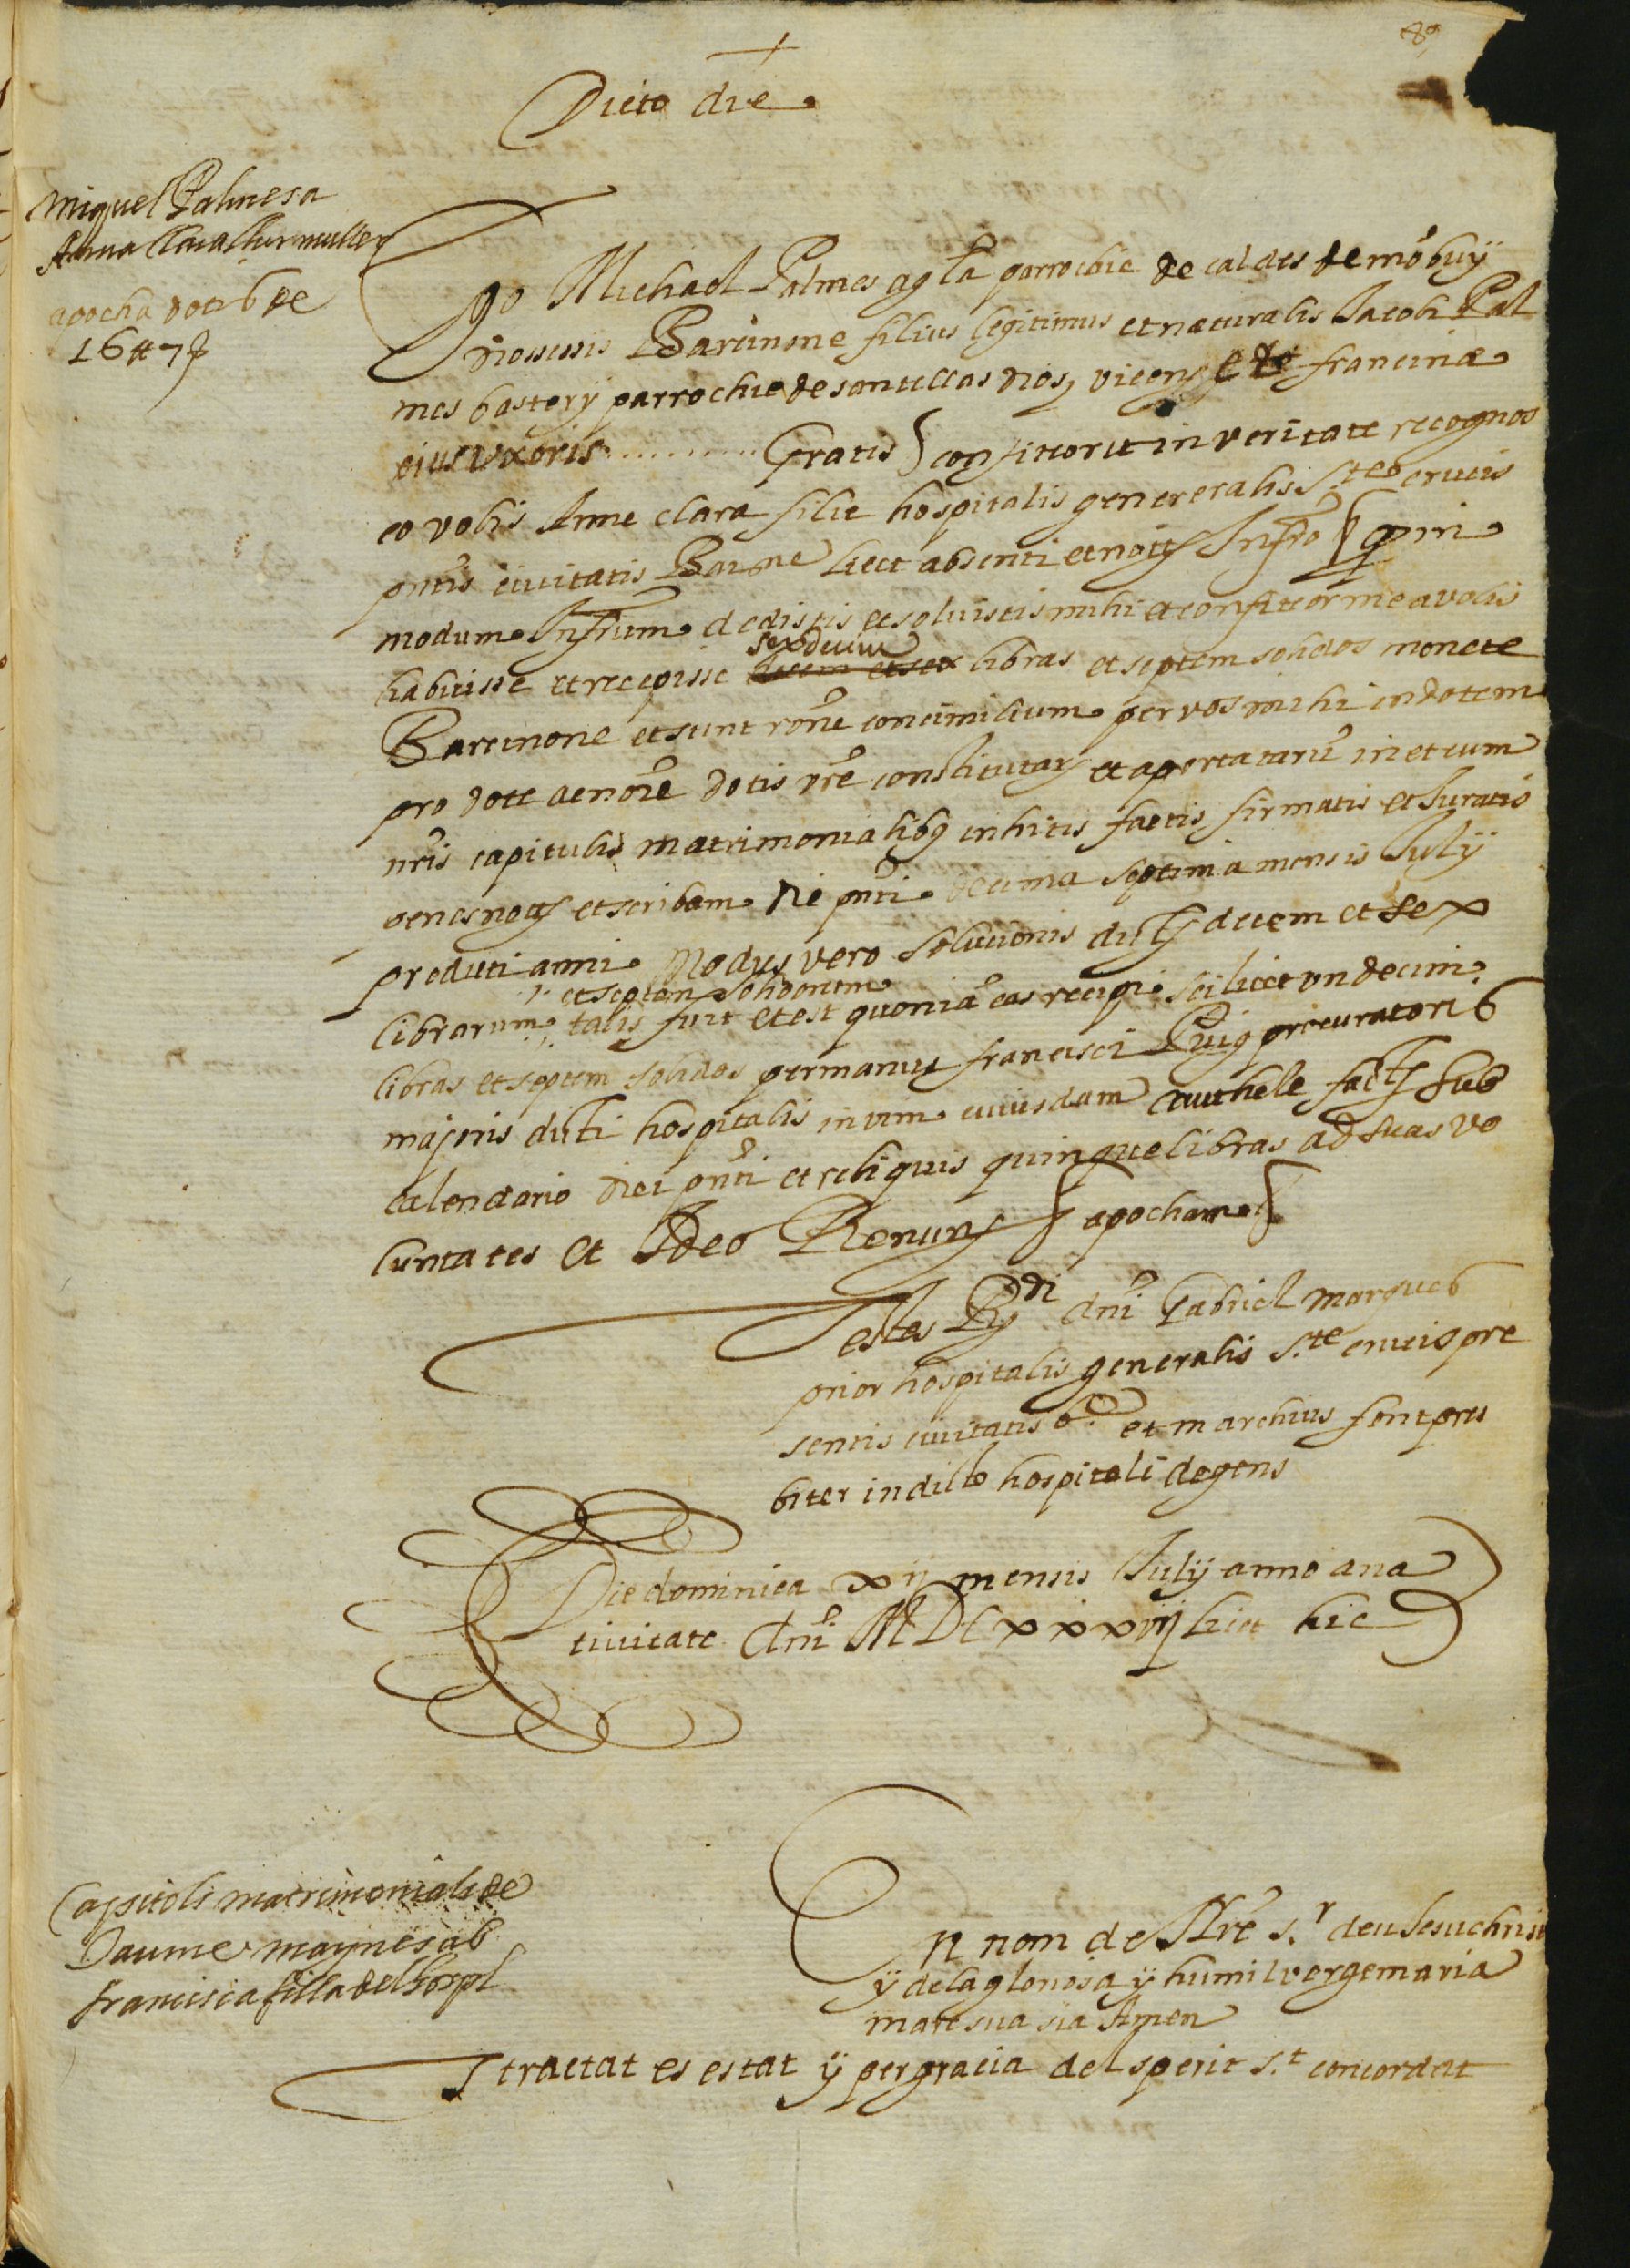 89
Dicto die
Miquel Palmes a
Anna Clara sa muller
apocha dotis de
16 # 7 ß
Ego Michael Palmes agla parrochie de caldes de mõbuy
diocessis Barcinone filius legitimus et naturalis Jacobi Pal
mes bastery parrochie de sentellas dios, vicens et francinæ
eius uxoris ........... Gratis confiteor et in veritate recognos
co vobis Anne clara filie hospitalis genereralis S.te crucis
pntis civitatis Barne licet absenti et not Infro
modum Infrum dedistis et solvistis mihi et confiteor me a vobis
habuisse et recepisse decem et sex sexdecim libras et septem solidos monete
Barcinone et sunt rõne per vos mihi in dotem
pro dote ac noĩe dotis vrẽ constitutar et aportatarũ in et cum
nrĩs capitulis matrimonialibq initis factis firmatis et Juratis
penes not et scribam die pnti decima septima mensis July
preduti anni Modus vero solucionis dict decem et sex
librarum et septem solidorum talis fuit et est quoniã eas recepi scilicet undecim
libras et septem solidos per manus francisci Puig procuratoris
majoris dicti hospitalis in vim cuiusdam fact sub
calendario diei pnti et reliquis quinque libras ad suas vo
luntates Et Ideo Renuns apocham
Testes Rdi dnĩ Gabriel marques
prior hospitalis generalis S.te crucis pre
sentis civitatis et marchius font pres
biter in dicto hospitali degens
Die dominica xij mensis July anno a na
tivitate dnĩ MDLxxxvij
Capitols matrimonials de
Jaume maynes ab
francisca filla del hospl
En nom de Nrẽ S.r deu Jesuchrist
ÿ dela gloriosa ÿ humil verge maria
mare sua sia Amen
tractat es estat ÿ per gracia del sperit S.t concordat